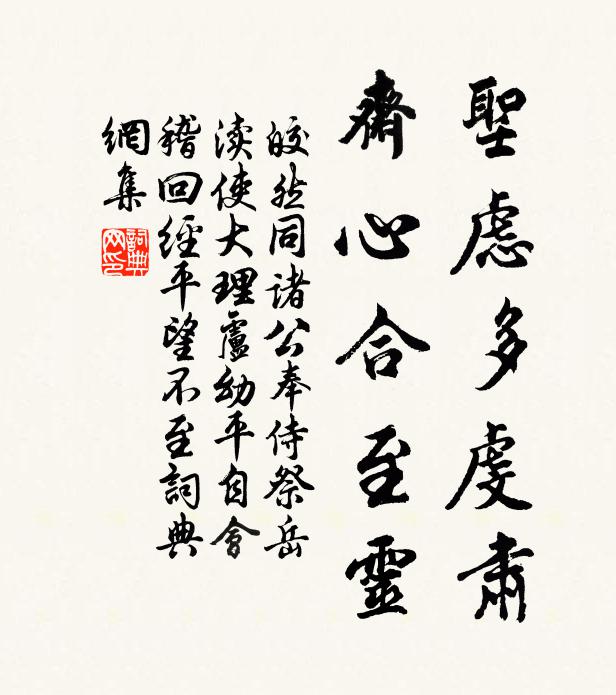 聖慮多虔肅
齋心合至靈
皎然同諸公奉侍祭岳
渎使大理盧幼平自會
稽回經平望不至詞典
網集
詞典网印